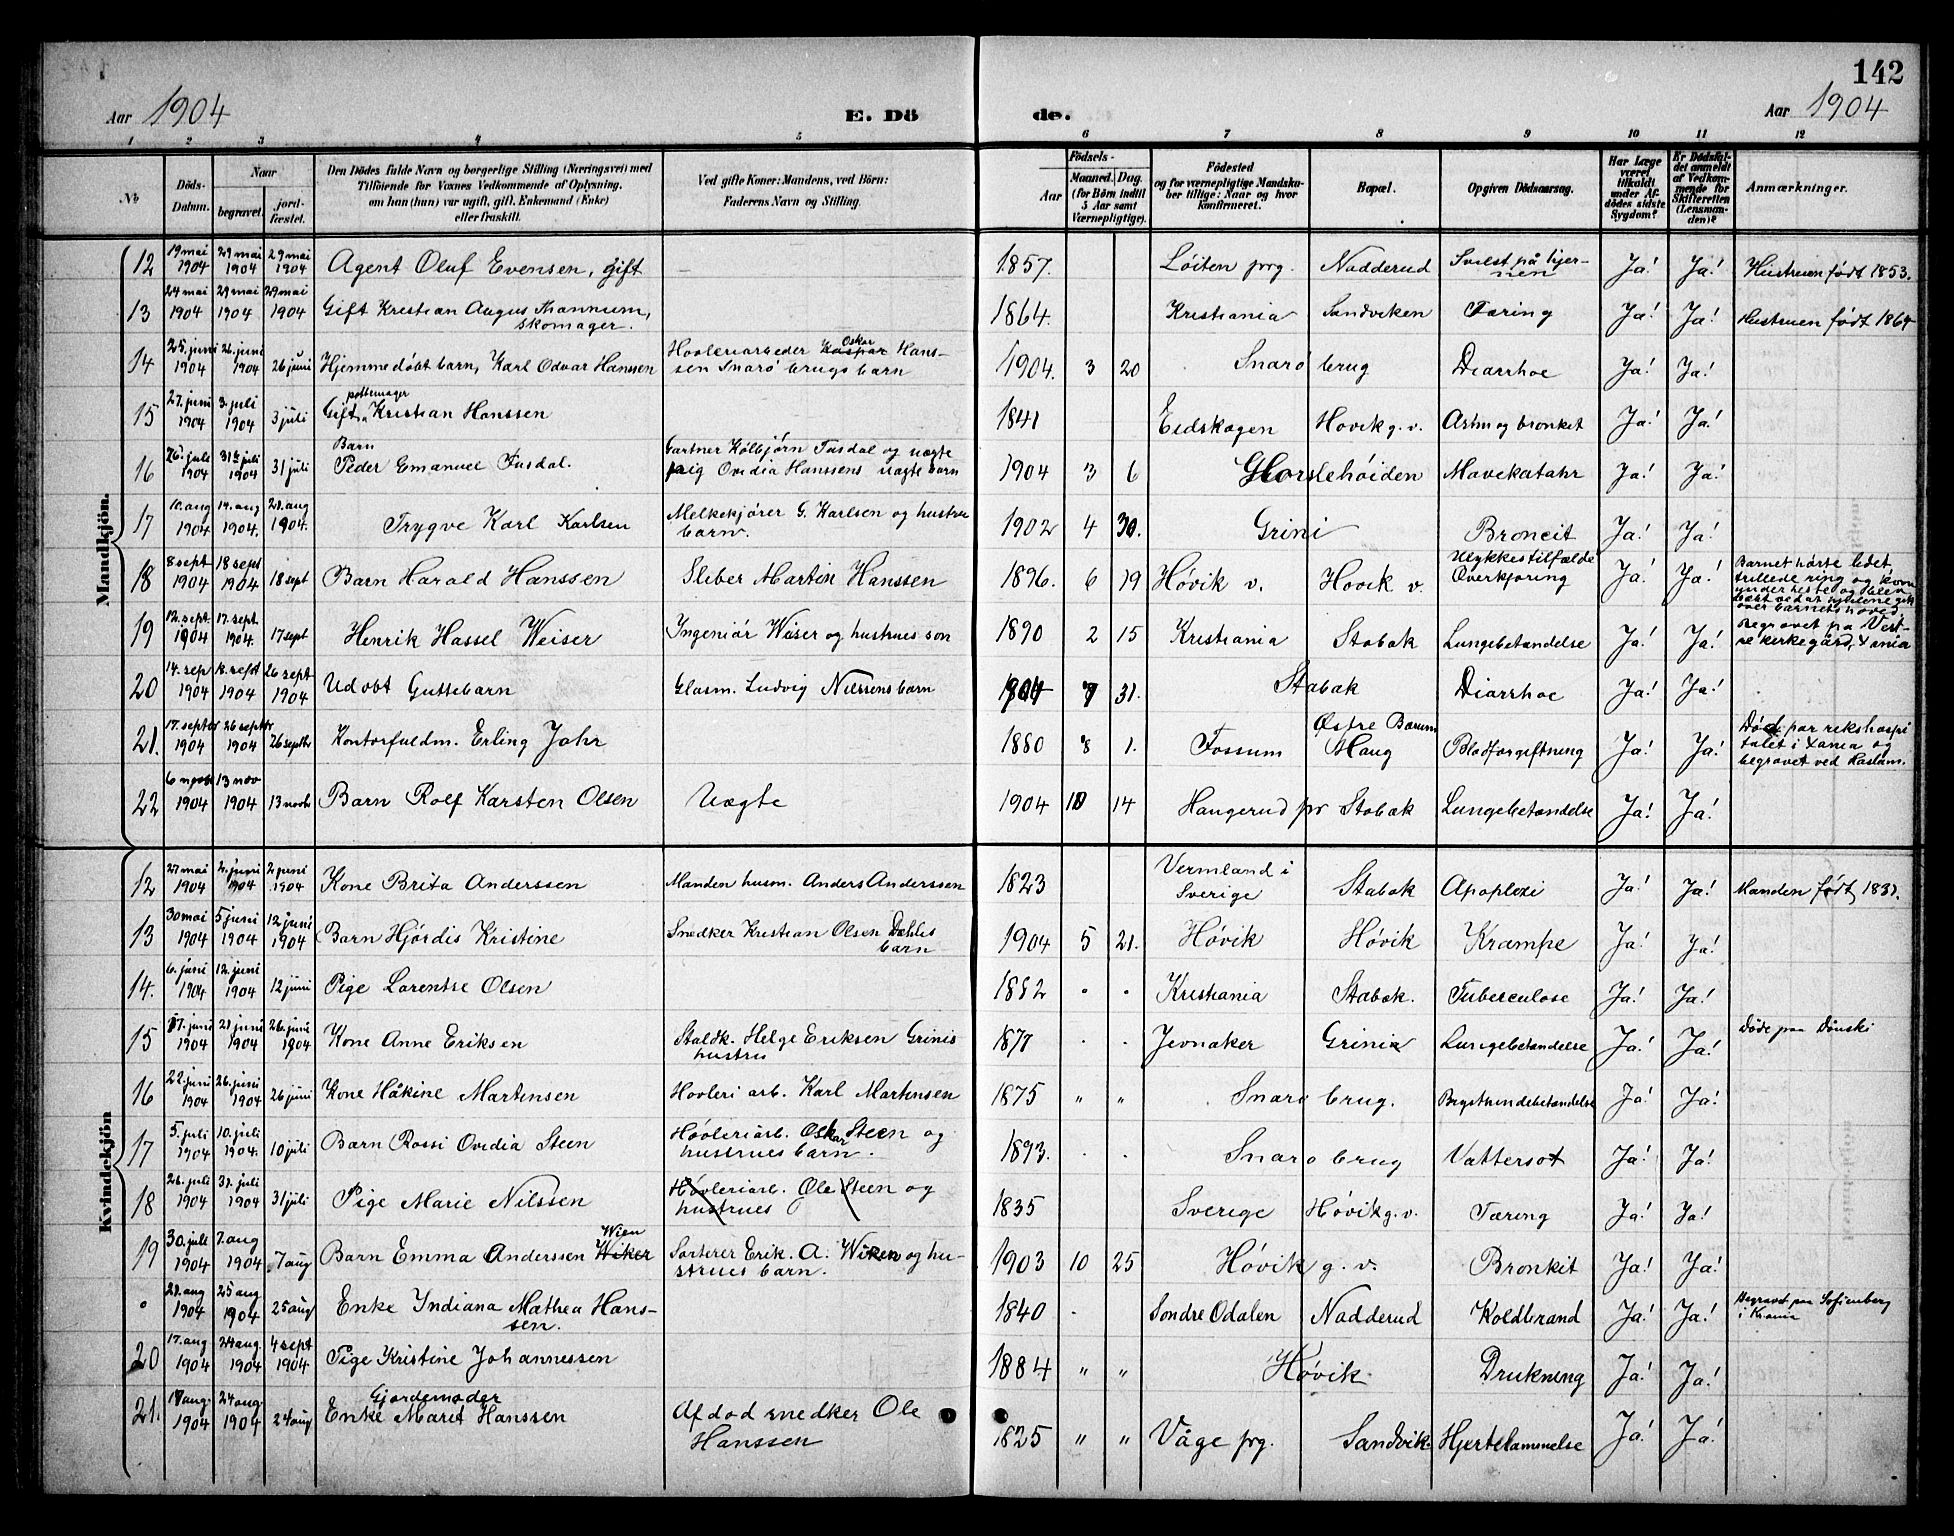 142
Aar 1904 E. Dö de. Aar 1904
1 2 3 4 5 6 7 8 9 10 11 12
№ Döds-Datum. Naar begravet. jordfæstet. Den Dödes fulde Navn og borgerlige Stilling (Næringsvei) med Tilföiende for Voxnes Vedkommende af Oplysning, om han (hun) var ugift, gift, Enkemand (Enke) eller fraskilt. Ved gifte Koner: Mandens, ved Börn: Faderens Navn og Stilling. Födsels- Aar Maaned. Dag. (for Börn indtil 5 Aar samt Værnepligtige). Födested og for værnepligtige Mandskaber tillige: Naar og hvor konfirmeret. Bopæl. Opgiven Dödsaarsag. Har Læge været tilkaldt under Afdödes sidste Sygdom? Er Dödsfaldet anmeldt af Vedkommende for Skifteretten (Lensmanden)? Anmærkninger.
Mandkjön.
12 19 mai 1904 29 mai 1904 29 mai 1904 Agent Oluf Evensen, gift — 1857. Löiten prg. Nadderud Svulst på hjernen Ja! Ja! Hustruen født 1853.
13 24 mai 1904 29 mai 1904 29 mai 1904 Gift Kristian Augus Thannum, skomager. 1864. Kristiania Sandviken Tæring Ja! Ja! Hustruen født 1864
14 25. juni 1904 26. juni 1904 26 juni Hjemmedøbt barn, Karl Odvar Hanssen Hovleriarbeder Kaspar Oskar Hanssen Snarø brugs barn 1904. 3 20 Snarø brug Diarrhoe Ja! Ja!
15 27. juni 1904 3. juli 1904 3 juli Gift pottemager Kristian Hanssen 1841 Eidskogen Hovik g. v. Astm og bronkit Ja! Ja!
16 26. juli 1904 31te juli 1904 31 juli Barn Peder Emanuel Fusdal. Gartner Kolbjørn Fusdal og uægte pig Ovidia Hanssens uægte barn 1904 3 6 Glorslehøiden Mavekatahr Ja! Ja!
17 10. aug 1904 14. aug 1904. 21. aug 1904. Trygve Karl Karlsen Melkekjører G. Karlsen og hustru barn. 1902 4 30. Grini Broncit Ja! Ja!
18 8 sept 1904 18 sept 1904 18 sept Barn Harald Hanssen Sliber Martin Hanssen 1896. 6 19 Høvik v. Hovik v. Ulykkestilfælde Overkjøring Ja! Ja! Barnet trillede ring og kom under heste og blev ved at hjulene gik over barnets hoved.
19 12. sept. 1904 17. sept. 1904. 17 sept Henrik Hassel Weiser Ingeniør Weiser og hustrues søn 1890 2 15 Kristiania Stabæk Lungebetændelse Ja! Ja! Begravet på Vestre kirkegård, Xania
20 14. sep 1904 18. sept 1904 26 sept 1904 Udøbt Guttebarn Glasm. Ludvig Nilssens barn 1904 7 31. Stabæk Diarrhoe Ja! Ja!
21. 17. septbr 1904 26 septbr 1904 26 septbr Kontorfuldm. Erling Jahr 1880 8 1. Fossum Østre Bærum Haug Blodforgiftning Ja! Ja! Død paa rikshospitalet i Xania og begravet ved Haslum.
22 6 novbr 1904 13 nov 1904 13 novbr Barn Rolf Karsten Olsen Uægte 1904 10 14 Haugerud pr Stabæk Lungebetændelse Ja! Ja!
Kvindekjön
12 27 mai 1904 2. juni 1904 2 juni 1904 Kone Brita Anderssen Manden husm. Anders Anderssen 1823 Vermland i Sverige Stabæk Apoplexi Ja! Ja! Manden født 1831.
13 30 mai 1904 5 juni 1904 12 juni 1904 Barn Hjördis Kristine Snedker Kristian Olsen Dæhlis barn 1904 5 21. Høvik Høvik Krampe Ja! Ja!
14. 6. juni 1904 12. juni 1904 12 juni Pige Larentse Olsen 1882 Kristiania Stabæk. Tuberculose Ja! Ja!
15 17. juni 1904 21 juni 1904 26. juni 1904 Kone Anne Eriksen Staldk. Helge Eriksen Grinis hustru 1877 Jevnaker Grini Lungebetændelse Ja! Ja! Døde paa Dønski
16 22. juni 1904 26. juni 1904 26 juni Kone Håkine Martensen Hovleri arb. Karl Martensen 1875 " " Snarø brug. Brysthindebetændelse Ja! Ja!
17 5. juli 1904 10. juli 1904. 10 juli Barn Rossi Ovidia Steen Høvleriarb. Oskar Steen og hustrues barn. 1893. Snarø brug Vattersot Ja! Ja!
18 26. juli 1904 31. juli 1904 31 juli Pige Marie Nilssen Høvleriarb. Ole Steen og hustrues 1835 Sverige Høvik g. v. Tæring Ja! Ja!
19 30. juli 1904 7. aug 1904 7 aug Barn Emma Anderssen Wiker Wien Sorterer Erik. A. Wiken og hustrues barn. 1903 10 25 Høvik g. v. Bronkit Ja! Ja!
21. aug 1904 25 aug 1904 25 aug Enke Indiana Mathea Hanssen. 1840 Søndre Odalen Nadderud Koldbrand Ja! Ja! Begravet paa Sofienberg i Krania
20 17. aug 1904 24 aug 1904 4 sept 1904 Pige Kristine Johannessen 1884 " " Høvik Drukning Ja! Ja!
21. 17 aug. 1904 24 aug. 1904 24 aug Gjordemoder Enke Maret Hanssen Afdød snedker Ole Hanssen 1825 " " Våge prg. Sandvik. Hjertelammelse Ja! Ja!